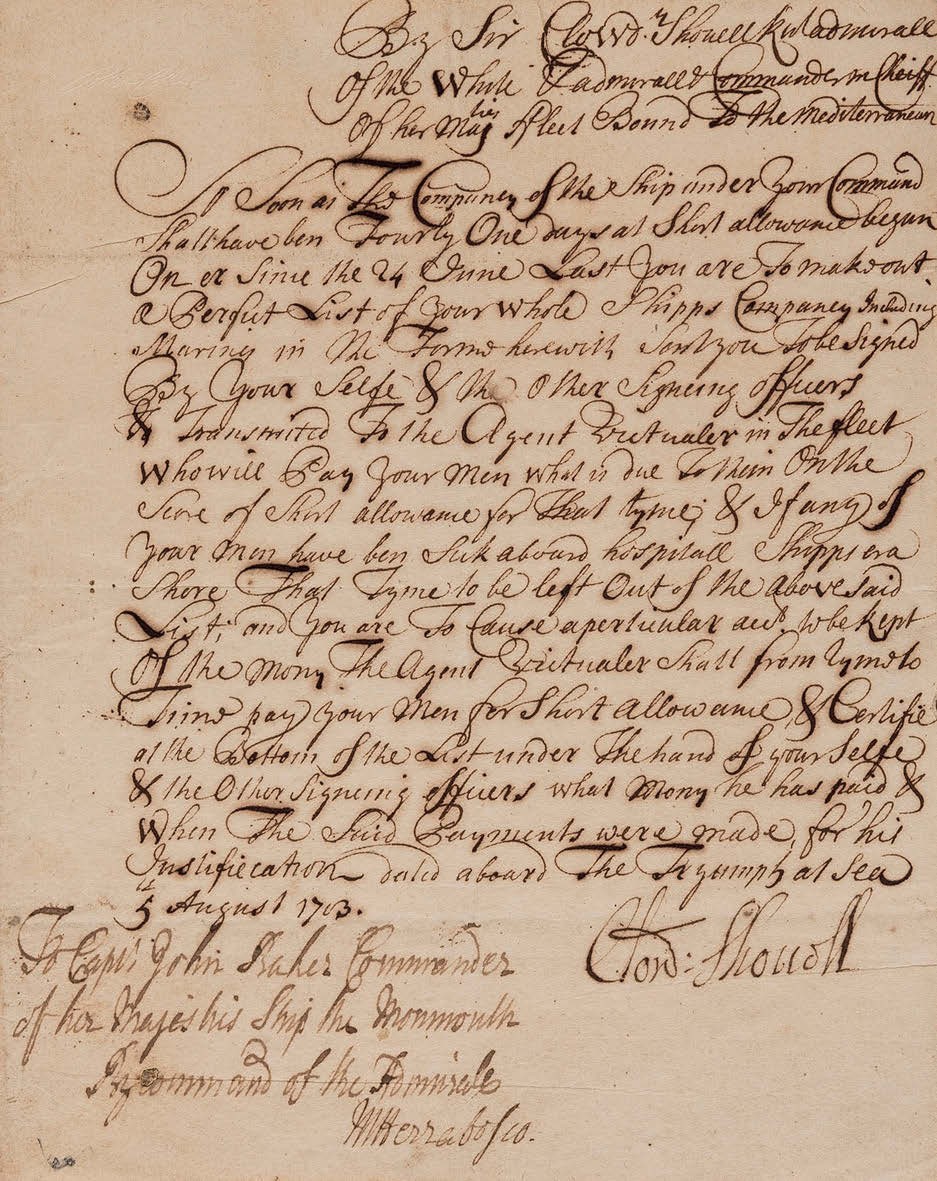 By Sir Clowd.r Shouell Kn.t admirall
Of the White & admirall & Commander in Cheiff
Of her Maj.ties fleet Bound To the Mediterranean
As Soon as The Company of the Ship under Your Command
Shall have ben Fourty One days at Short allowance begun
On or Since the 24 June Last You are To make out
a Perfict List of Your Whole Shipps Company Including
Marins in the Forme herewith Sent you To be Signed
By Your Selfe & the Other Signeing officers
& Transmited To the Agent Victualer in The fleet
Who will Pay Your Men what is due To them On the
Score of Short allowance for That tyme; & If any of
Your Men have ben Sick aboard hospitall Shipps or a
Shore That Tyme to be left Out of the above said
List; and You are To Cause a perticular acc.t to be kept
Of the Mony The Agent Victualer Shall from tyme to
Time pay your Men for Short allowance, & Certifie
at the Bottom of the List under The hand of your Selfe
& the Other Signeing officers what Mony he has paid &
When The Said Payments were made, for his
Justifiecation dated aboard The Tryumph at Sea
5.th August 1703.
Clowd: Shouell
To Cap.tn John Baker Commander
of her Majesties Ship the Monmouth
By command of the Admirall
MHerrabosco.